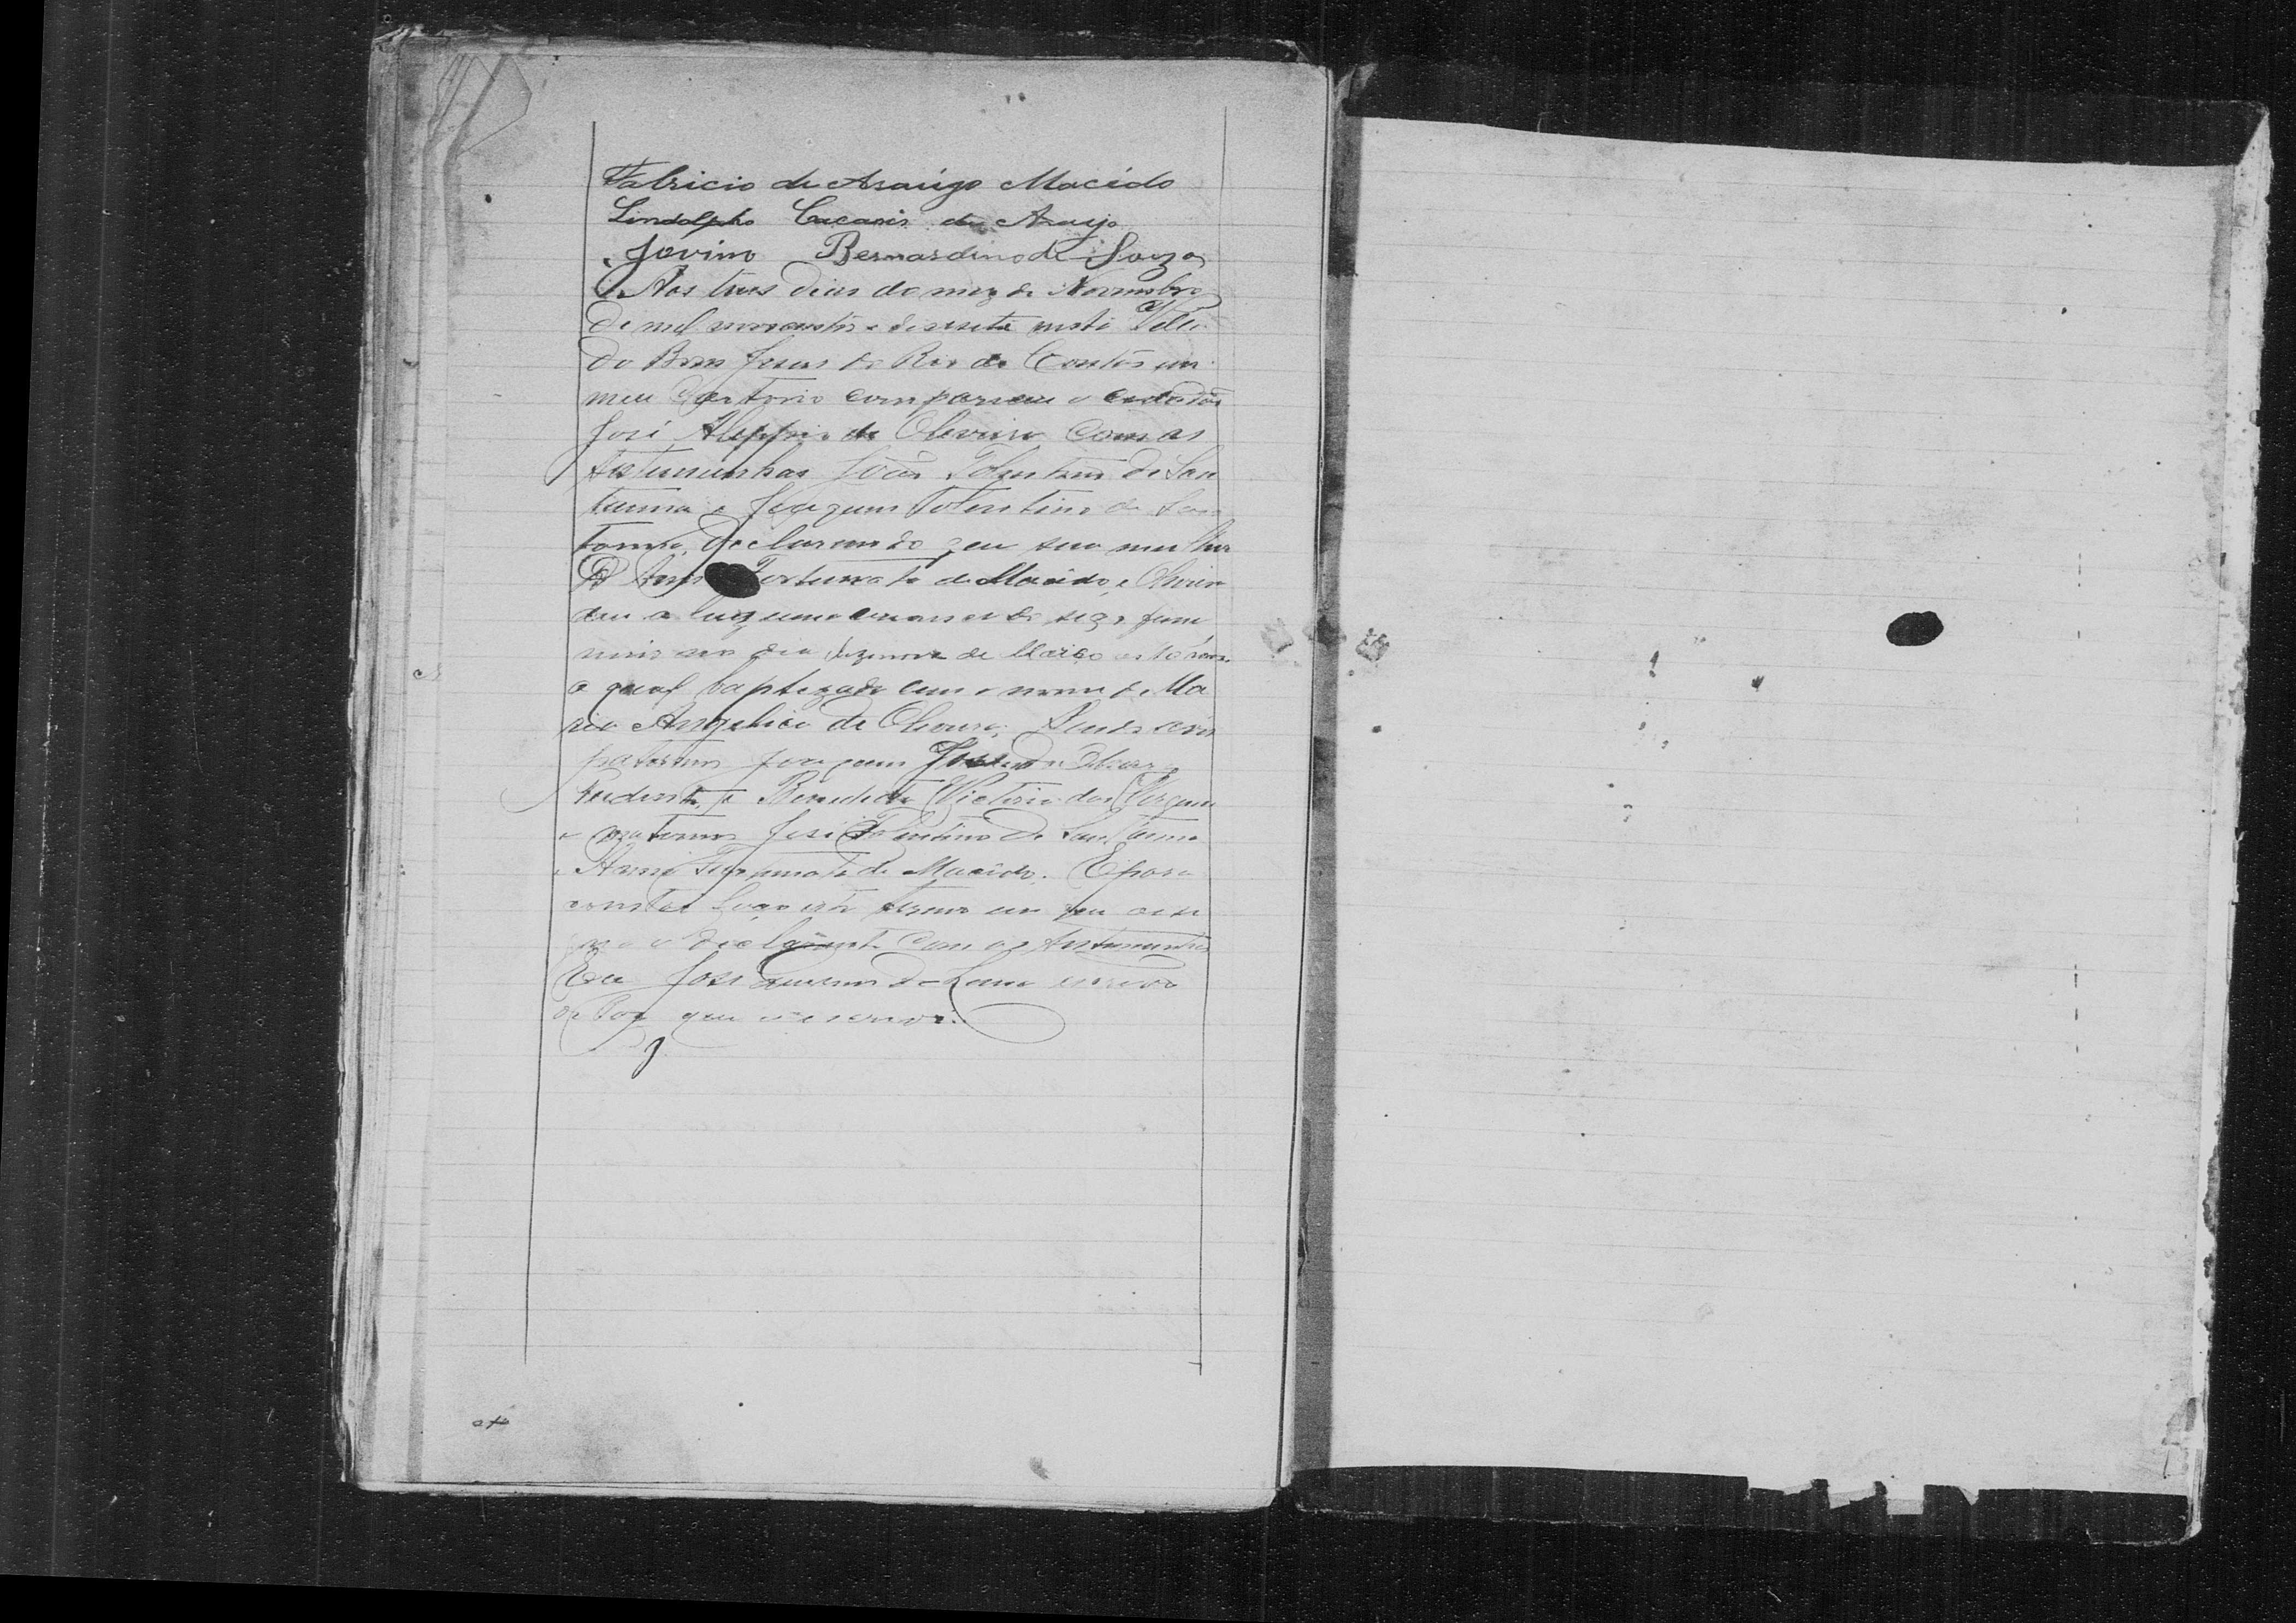 Fabricio de Araújo Macêdo
Lindolpho de Araujo
Jovino Bernardino de Souza
Aos tres dias do mez de Novembro
de mil novecentos e desesete nesta Villa
do Bom Jesus do Rio de Contas em
meu Cartorio compareceu o cidadão
José de Oliveira com as
testemunhas João Tolentino de San
tanna e Joaquim Tolentino de San
tanna, declarando que sua mulher
D Anna Fortunata de Macêdo e Oliveira
deu a luz uma creança do sexo femi
nino no dia dezenove de Março
a qual baptizada com o nome de Ma
ria Angelica de Oliveira; Sendo avós
paternos Joaquim José
e Benedicta Victoria das Virgens
e maternos José Tolentino de San tanna
e Anna Fortunata de Macêdo. E para
constar faço este termo em que assi
gna o declarante com as testemunhas
Eu José de Lima escrivão
que o escrevi.